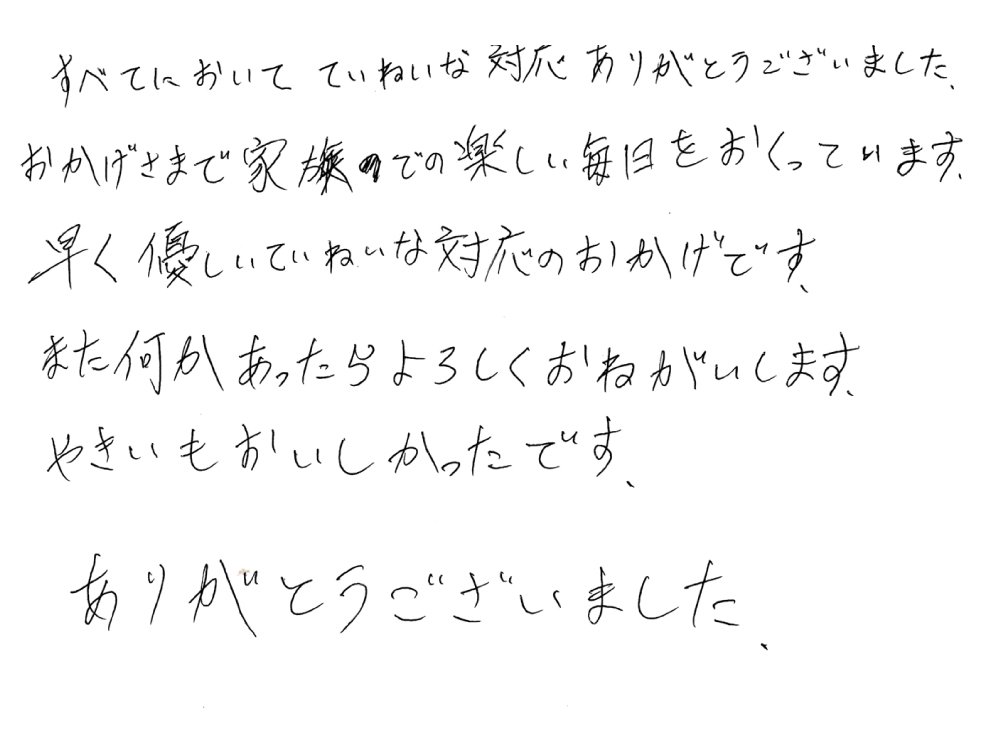 すべてにおいて ていねいな 対応 ありがとうございました、
おかげさまで家族での楽しい毎日をおくっています、
早く優しいていねいな対応のおかげです、
また何かあったらよろしくおねがいします、
やきいもおいしかったです、
ありがとうございました、